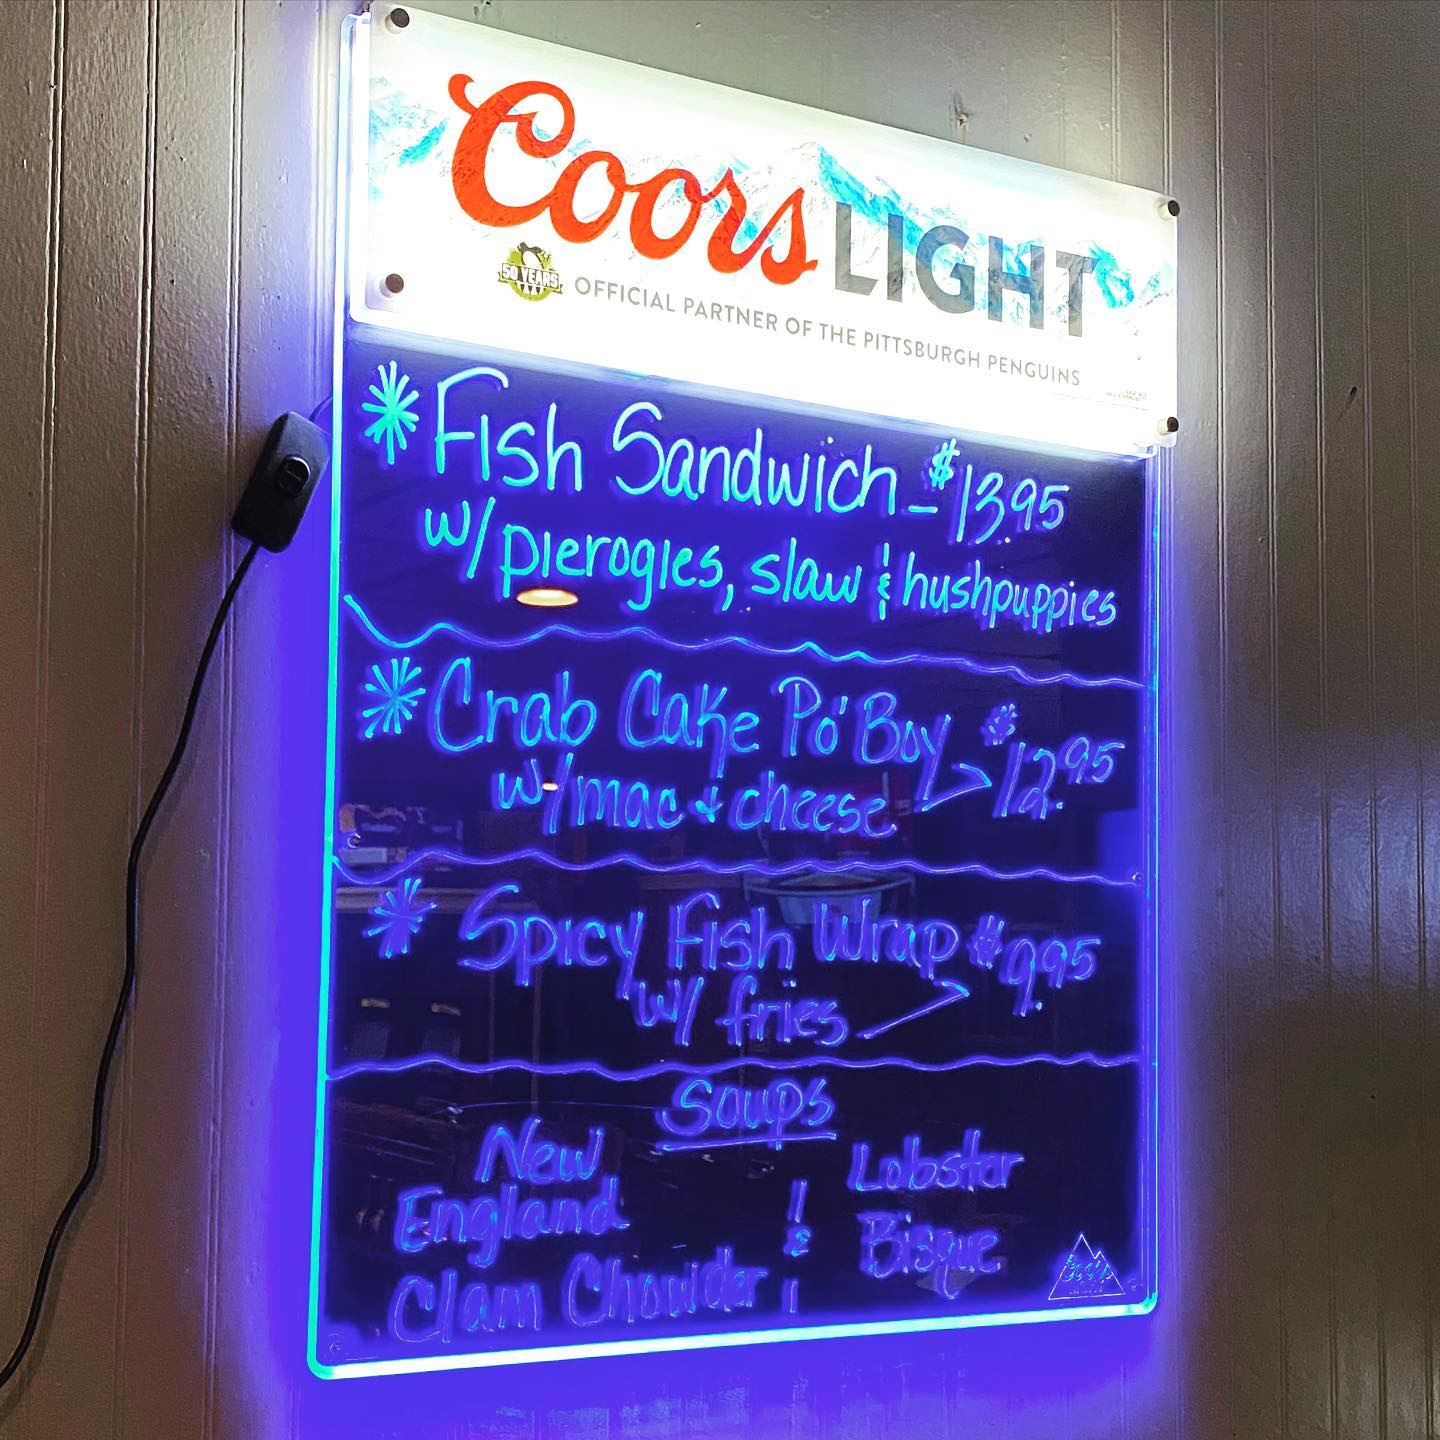 Coors LIGHT
50 YEARS
OFFICIAL PARTNER OF THE PITTSBURGH PENGUINS
* Fish Sandwich - $13.95
w/ pierogies, slaw & hushpuppies
* Crab Cake Po' Boy $12.95
w/ mac & cheese
* Spicy Fish Wrap $9.95
w/ fries
Soups
New England Clam Chowder
&
Lobster Bisque